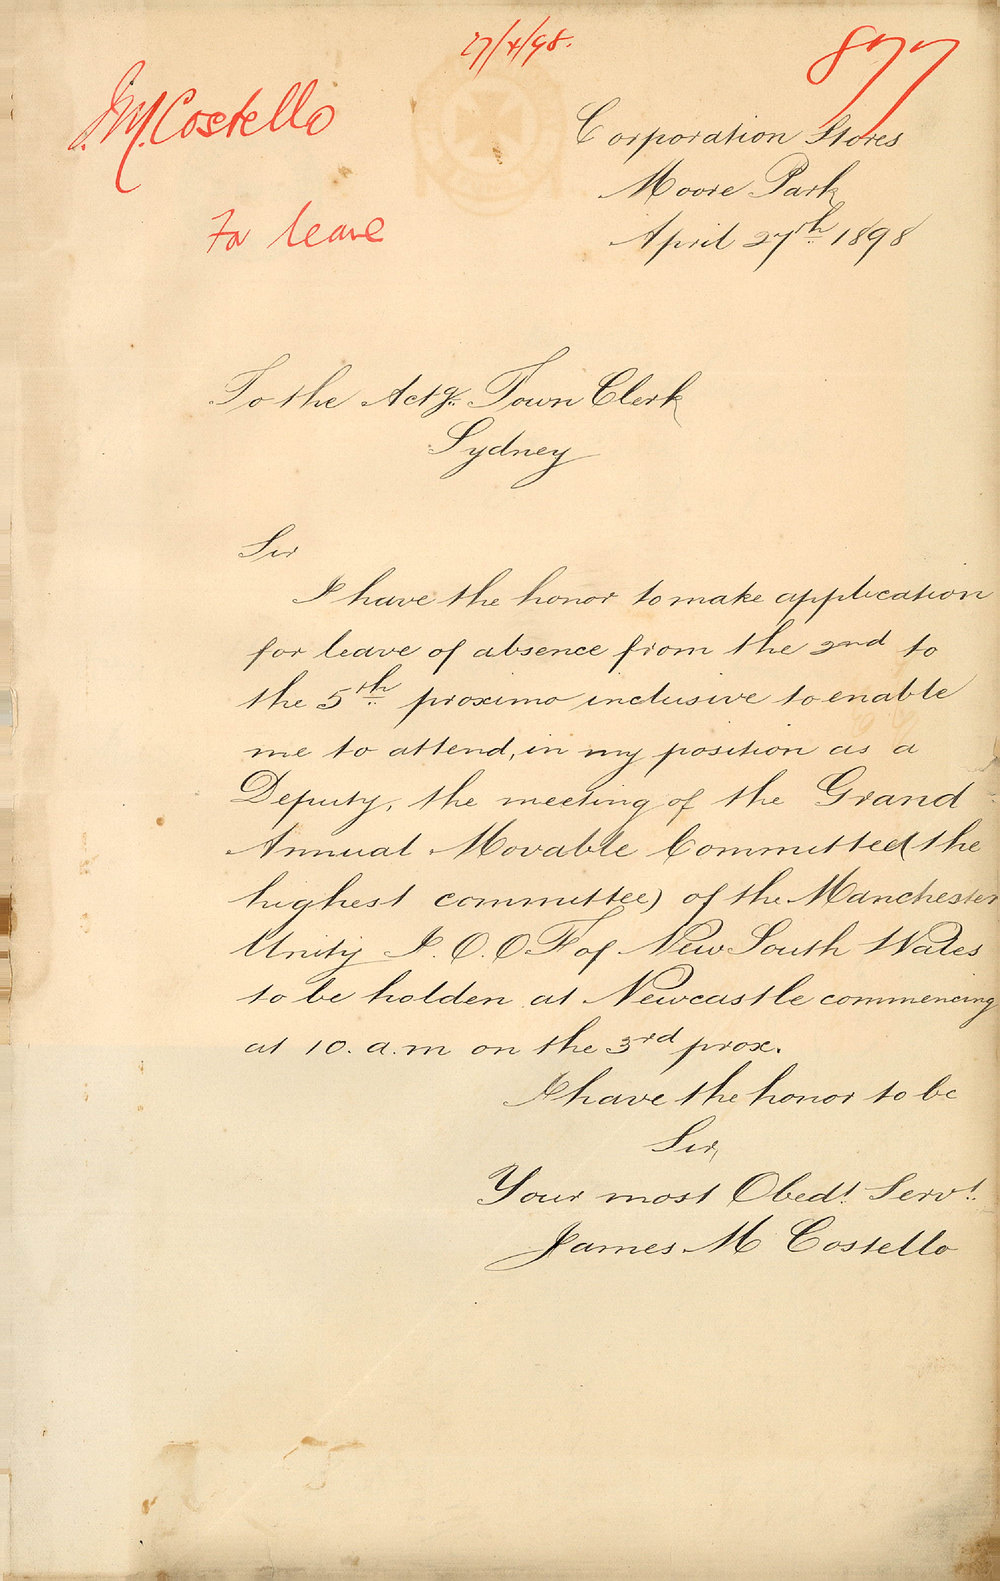 27/4/98.
877
J.M. Costello
For leave
Corporation Stores
Moore Park
April 27th 1898
To the Actg. Town Clerk
Sydney
Sir
I have the honor to make application
for leave of absence from the 2nd to
the 5th proximo inclusive to enable
me to attend, in my position as a
Deputy, the meeting of the Grand
Annual Movable Committee (the
highest committee) of the Manchester
Unity I.O.O.F of New South Wales
to be holden at Newcastle commencing
at 10. a.m on the 3rd prox.
I have the honor to be
Sir,
Your most Obedt. Servt.
James M Costello